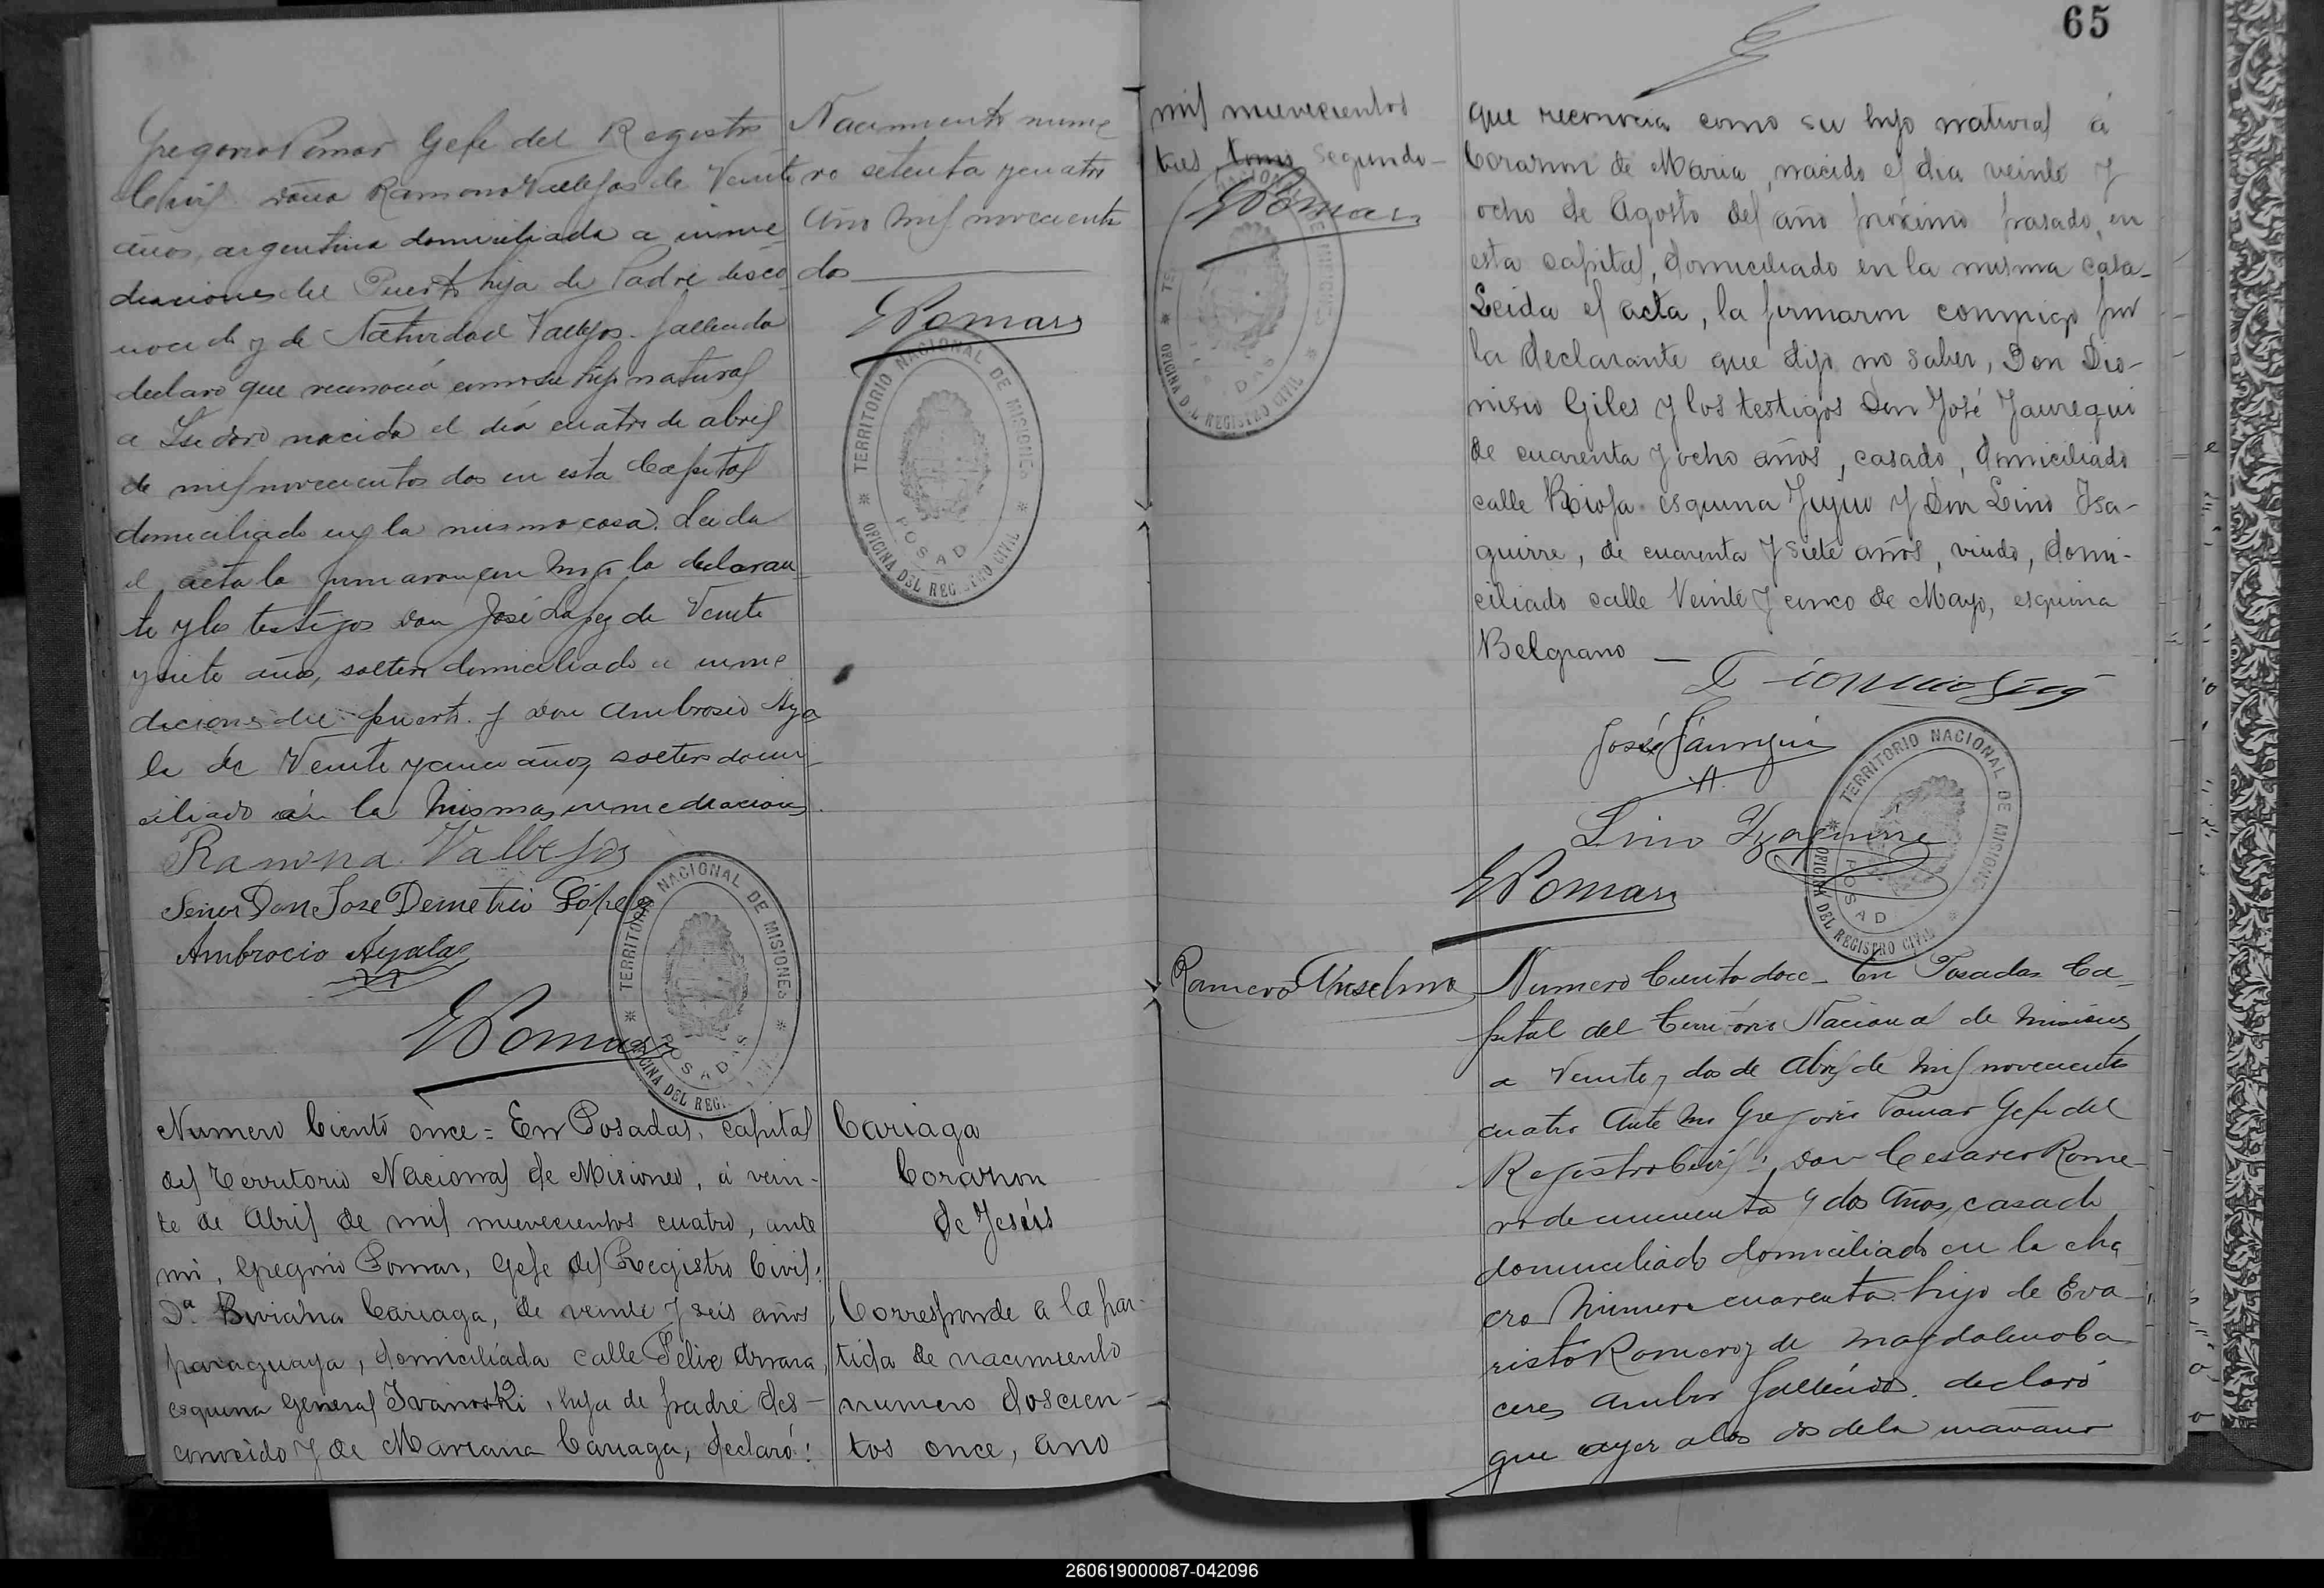 Gregorio Pomar Gefe del Registro
Civil doña Ramona Vallejos de Veinte
años, argentina domiciliada a inme
diaciones del Puerto hija de Padre desco
nocido y de Natividad Vallejos. fallecida
declaro que reconocia como su hijo natural
a Isidoro nacido el dia cuatro de abril
de mil novecientos dos en esta Capital
domiciliado en la misma casa. Leida
el acta la firmaron con migo la declaran
te y los testigos don José Lopez de Veinte
y siete años, soltero domiciliado a inme
diciones del puerto y don Ambrosio Aya
la de Veinte y cinco años, soltero domi
ciliado en la mismas inmediaciones.
Ramona Vallejos
Señor Don Jose Demetrio López
Ambrocio Ayala
GPomar
TERRITORIO NACIONAL DE MISIONES
OFICINA DEL REGISTRO CIVIL
POSADAS
Nacimiento nume
ro setenta y cuatro
Año Mil novecientos
dos
GPomar
TERRITORIO NACIONAL DE MISIONES
OFICINA DEL REGISTRO CIVIL
POSAD
Numero Ciento once = En Posadas, capital
del Territorio Nacional de Misiones, á vein-
te de Abril de mil nuevecientos cuatro, ante
mi, Gregorio Pomar, Gefe del Registro Civil:
Dª Biviana Cariaga, de veinte y seis años
paraguaya, domiciliada calle Felix Azara,
esquina General Ivanoski, hija de padre des-
conocido y de Mariana Cariaga, declaró:
Cariaga
Corazon
de Jesús
Corresponde a la par-
tida de nacimiento
numero doscien-
tos once, año
65
mil nuevecientos
tres tomo segundo-
GPomar
OFICINA DEL REGISTRO CIVIL
que reconocia como su hijo natural á
Corazon de Maria, nacido el dia veinte y
ocho de Agosto del año próximo pasado, en
esta capital, domiciliado en la misma casa-
Leida el acta, la firmaron conmigo por
la declarante que dijo no saber, Don Dio-
nisio Giles y los testigos Don José Jauregui
de cuarenta y ocho años, casado, domiciliado
calle Rioja esquina Jujuy y Don Lino Isa-
guirre, de cuarenta y siete años, viudo, domi-
ciliado calle Veinte y cinco de Mayo, esquina
Belgrano —
José Jáuregui
Lino Yzaguirre
GPomar
TERRITORIO NACIONAL DE MISIONES
OFICINA DEL REGISTRO CIVIL
POSAD
Romero Anselmo
Numero Ciento doce - En Posadas Ca-
pital del Territorio Nacional de Misiones
a Veinte y dos de Abril de Mil novecientos
cuatro Ante mi Gregorio Pomar Gefe del
Registro Civil: don Cesareo Rome-
ro de cincuenta y dos años, casado
domiciliado domiciliado en la cha
cra Numero cuarenta hijo de Eva-
risto Romero y de Magdalena Ca
ceres ambos fallecidos. declaró
que ayer a las dos de la mañana
260619000087-042096